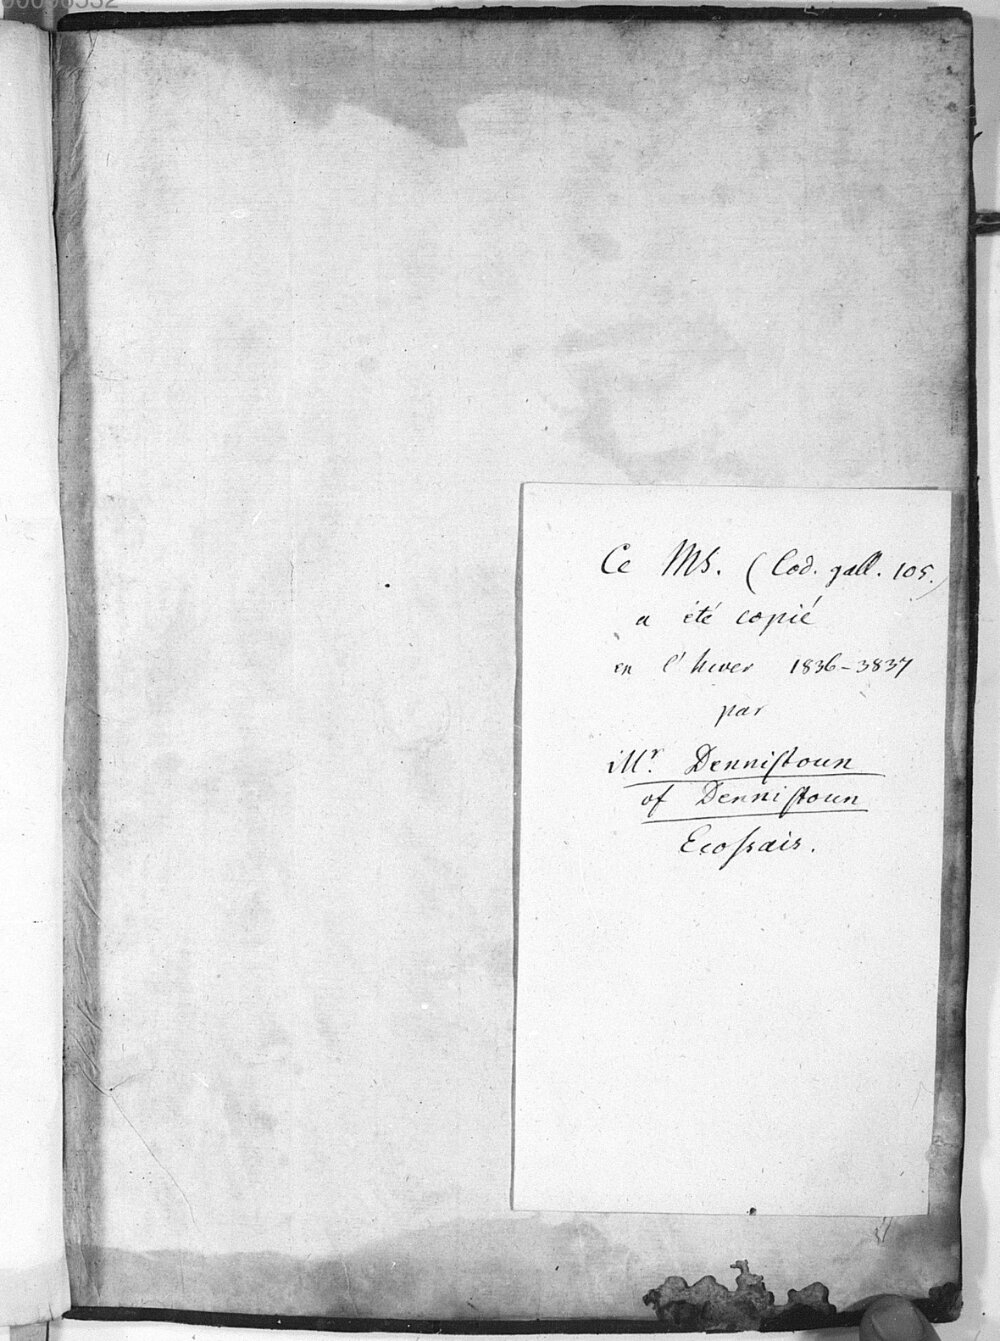 Ce MS. (Cod. gall. 105.)
a été copié
en l'hiver 1836-3837
par
Mr. Denniſtoun
of Denniſtoun
Ecoſsais.